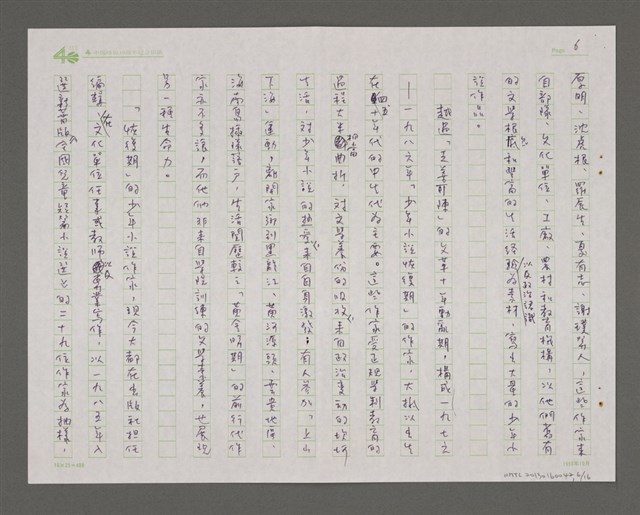 Page 6
厚明、沈虎根、羅辰生、夏有志、謝璞等人，這些作家來
自部隊、文化單位、工廠、農村和教育機構，以他們舊有
的文學根柢和豐富的生活經驗以及政治信識為素材，寫出大量的少年小
說作品。
越過「文革斷陣」的文革十年動亂期，構成一九七六
——一九八六年「少年小說恢復期」的作家，大抵以出生
在四五十年代的中生代為主要。這些作家受正規學制教育的
過程大半相當曲折，對文學養份的吸收來自政治變動的坎坷
生活，對少年小說的熱愛來自自身激發；有人參加「上山
下海」運動，離開家鄉到黑龍江、黃河源頭、雲貴地區、
海南島插隊落戶，生活閱歷較之「黃金時期」的前行代作
家亦不多讓，而他們那未自學院訓練的文學素養，也展現
另一種生命力。
「恢復期」的少年小說作家，現今大都在出版社担任
編輯、在文化單位任事或教師以及專業寫作，以一九八五年入
選新蕾版《全國兒童短篇小說選》的二十九位作家為抽樣，